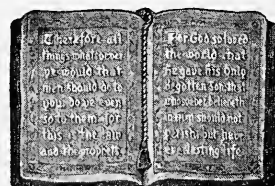 Therefore all
things whatsoever
ye would that
men should do to
you, do ye even
so to them: for
this is the law
and the prophets
For God so loved
the world that
he gave his only
begotten son, that
whosoever believeth
in him should not
perish, but have
everlasting life